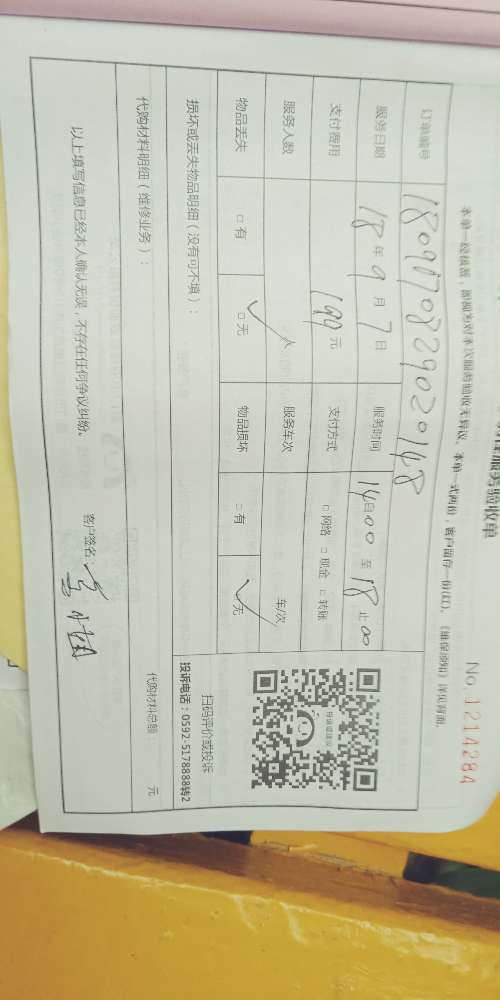 服务验收单
No. 1214284
本单一经核盖，即视为对本次服务验收无异议。本单一式两份，客户留存一份(红)。《维保须知》详见背面。
订单编号 1809070829020148
服务日期 18 年 9 月 7 日 服务时间 14 00 至 18 止 00
支付费用 199 元 支付方式 □ 网络 □ 现金 □ 转账
服务人数 人 服务车次 车/次
物品丢失 □ 有 □ 无 物品损坏 □ 有 □ 无
扫码评价或投诉
投诉电话：0592-5178888转2
损坏或丢失物品明细（没有可不填）：
代购材料明细（维修业务）：
代购材料总额： 元
以上填写信息已经本人确认无误，不存在任何争议纠纷。
客户签名